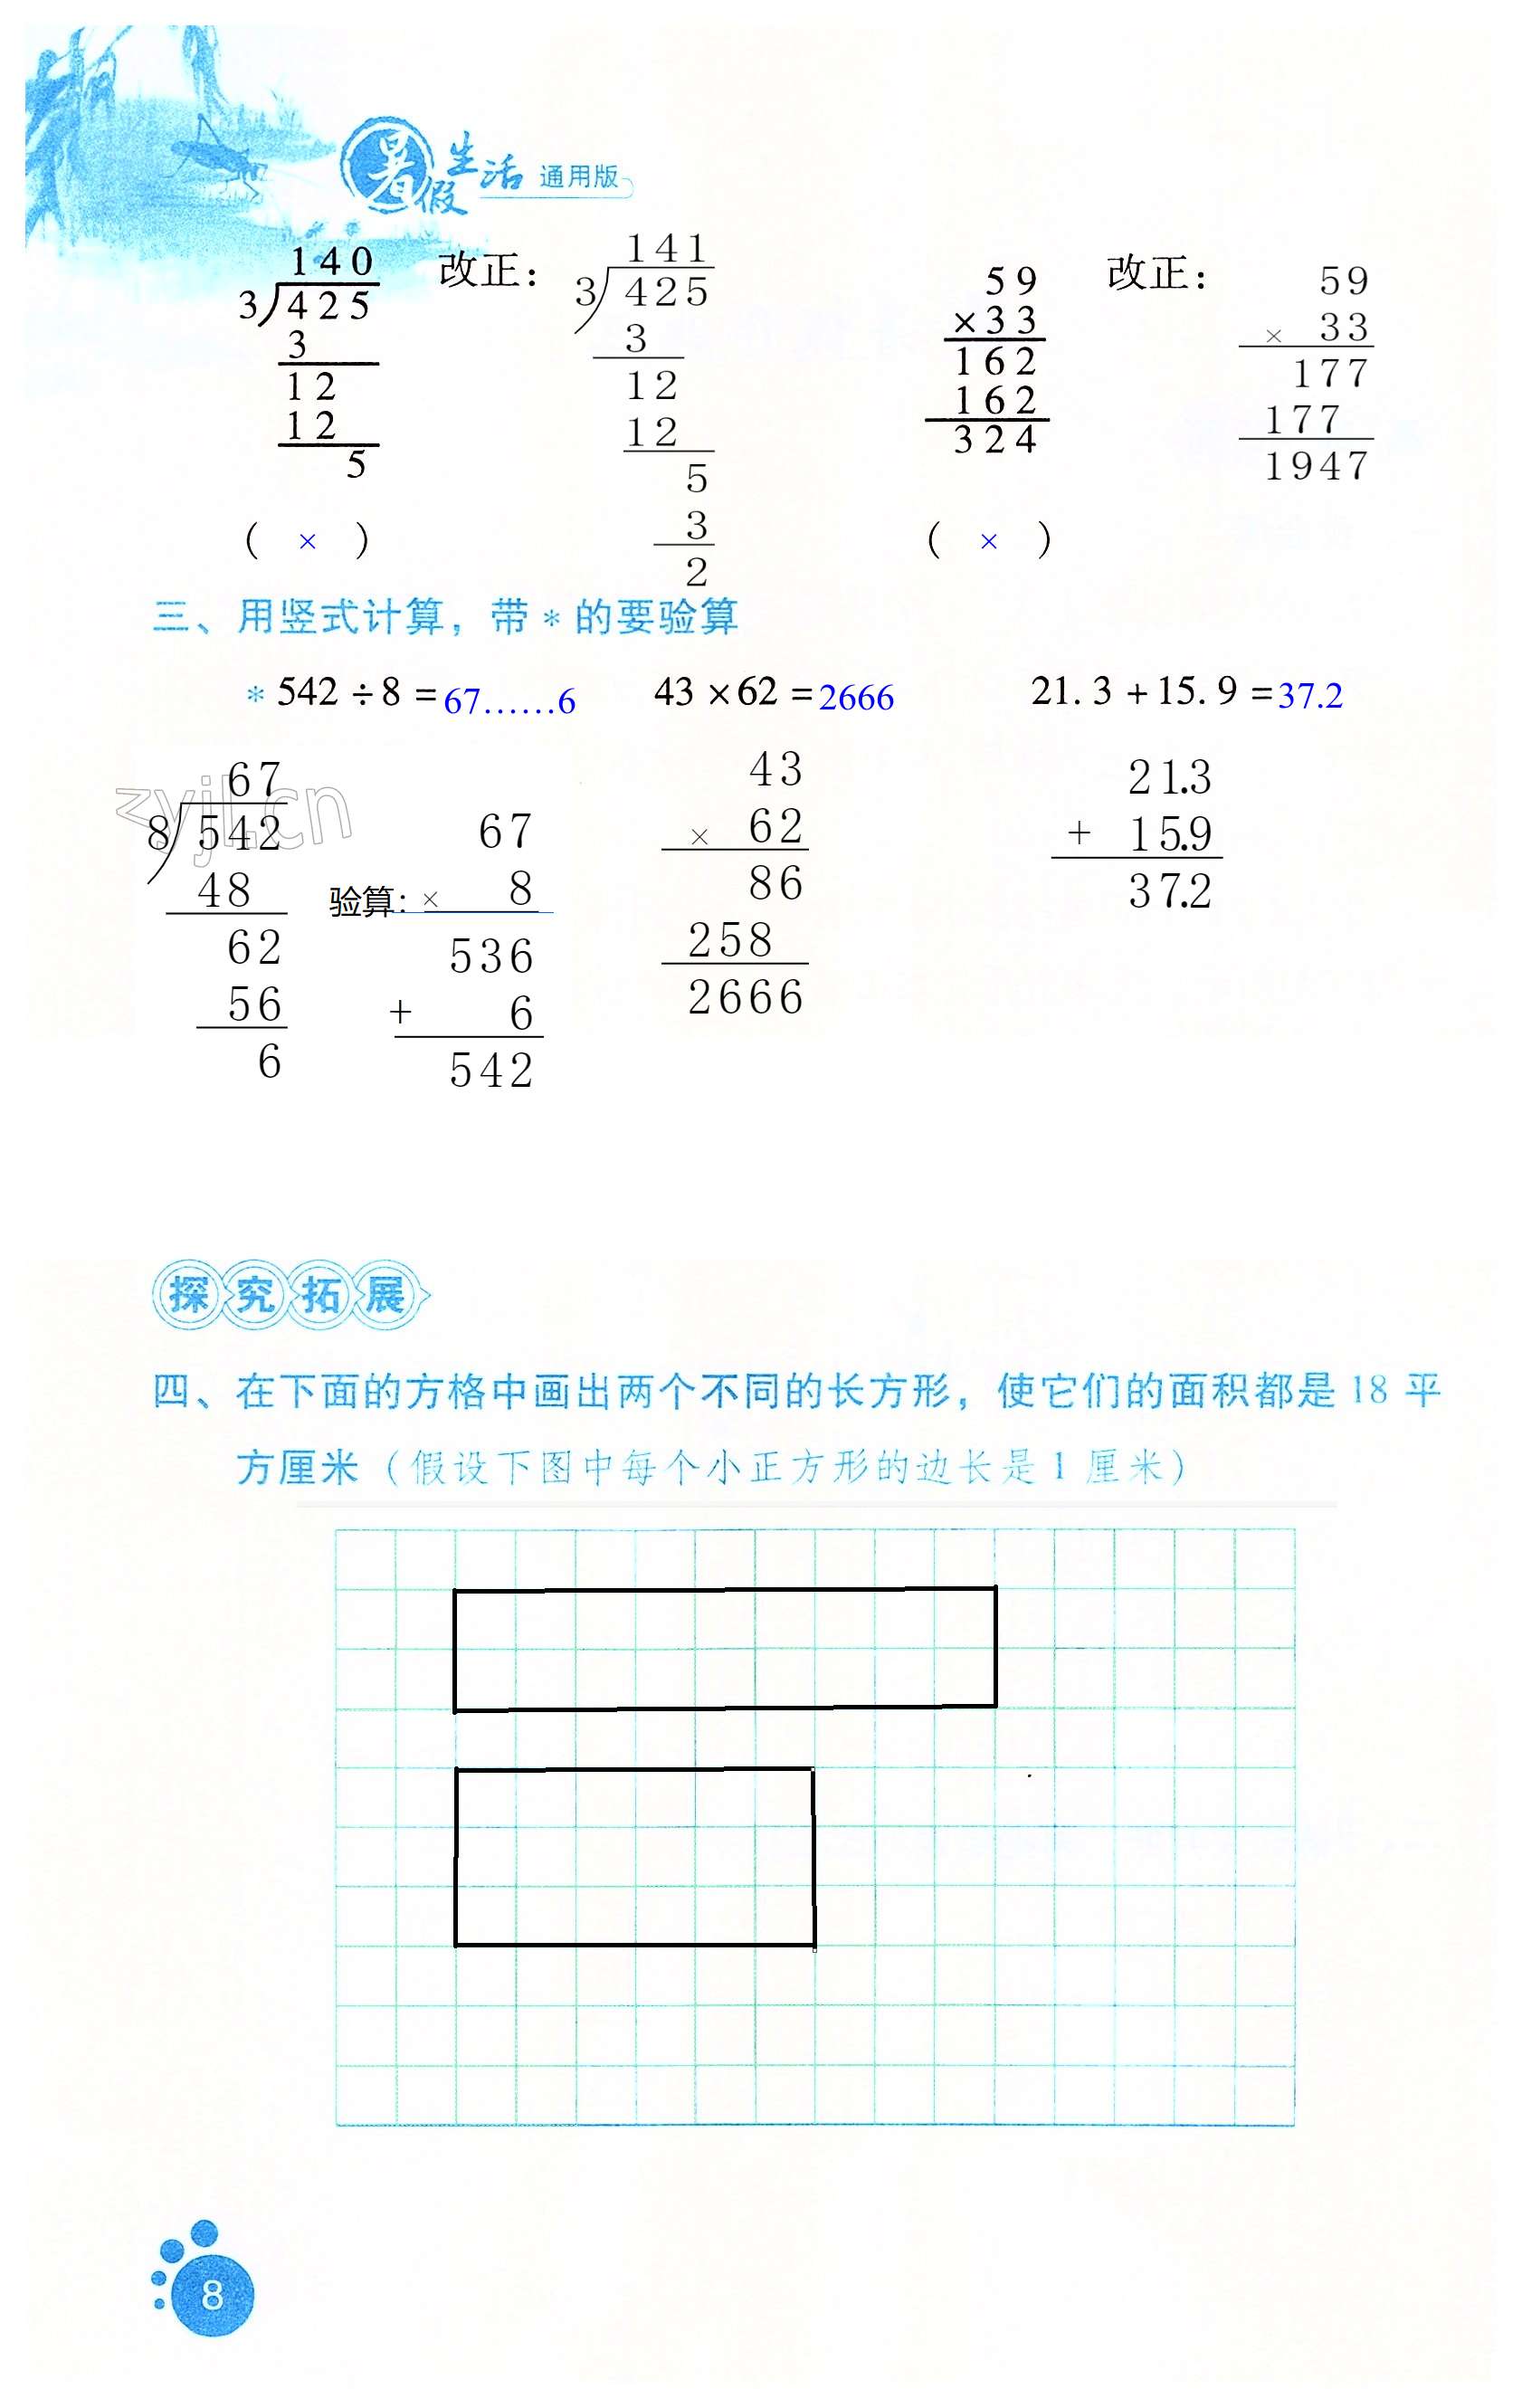 暑假生活 通用版
140
3)425
3
12
12
5
( × )
改正：
141
3)425
3
12
12
5
3
2
59
×33
162
162
324
( × )
改正：
59
× 33
177
177
1947
三、用竖式计算，带*的要验算
*542÷8=67……6 43×62=2666 21.3+15.9=37.2
67
8)542
48
62
56
6
验算：
67
× 8
536
+ 6
542
43
× 62
86
258
2666
21.3
+ 15.9
37.2
zyjl.cn
探究拓展
四、在下面的方格中画出两个不同的长方形，使它们的面积都是18平
方厘米（假设下图中每个小正方形的边长是1厘米）
8